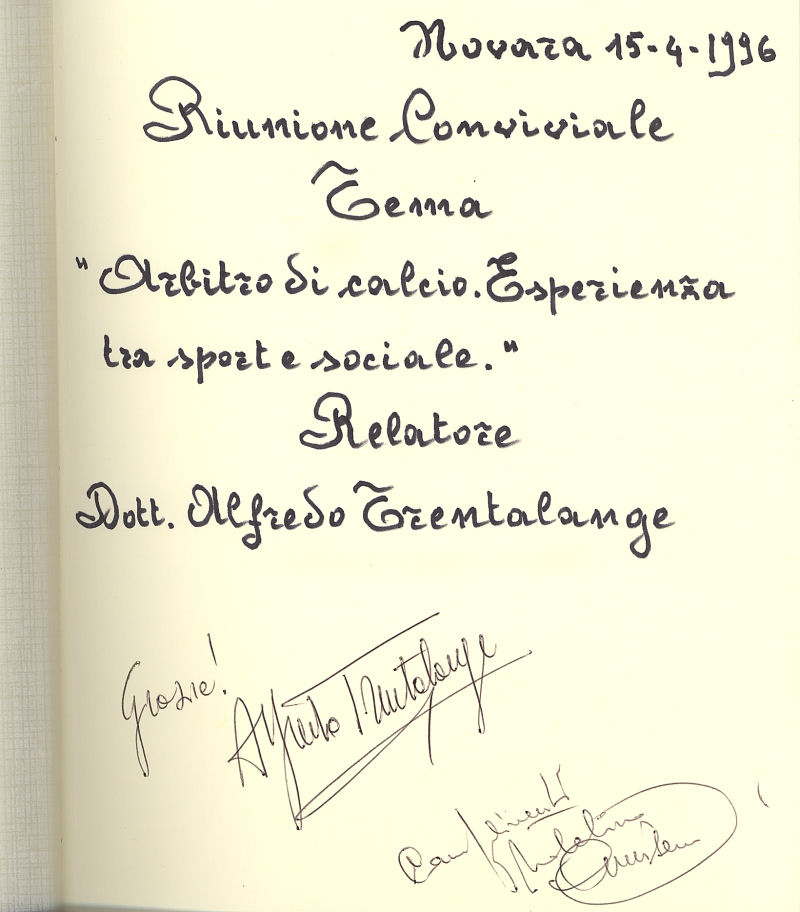 Novara 15-4-1996
Riunione Conviviale
Tema
"Arbitro di calcio. Esperienza
tra sport e sociale."
Relatore
Dott. Alfredo Trentalange
Grazie!
Alfredo Trentalange
Complimenti